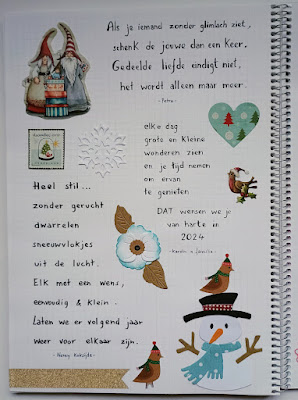 Als je iemand zonder glimlach ziet,
schenk de jouwe dan een keer.
Gedeelde liefde eindigt niet,
het wordt alleen maar meer.
elke dag
grote en kleine
wonderen zien
en je tijd nemen
om ervan
te genieten
DAT wensen we je
van harte in
2024
Heel stil...
zonder gerucht
dwarrelen
sneeuwvlokjes
uit de lucht.
Elk met een wens,
eenvoudig & klein.
Laten we er volgend jaar
weer voor elkaar zijn.